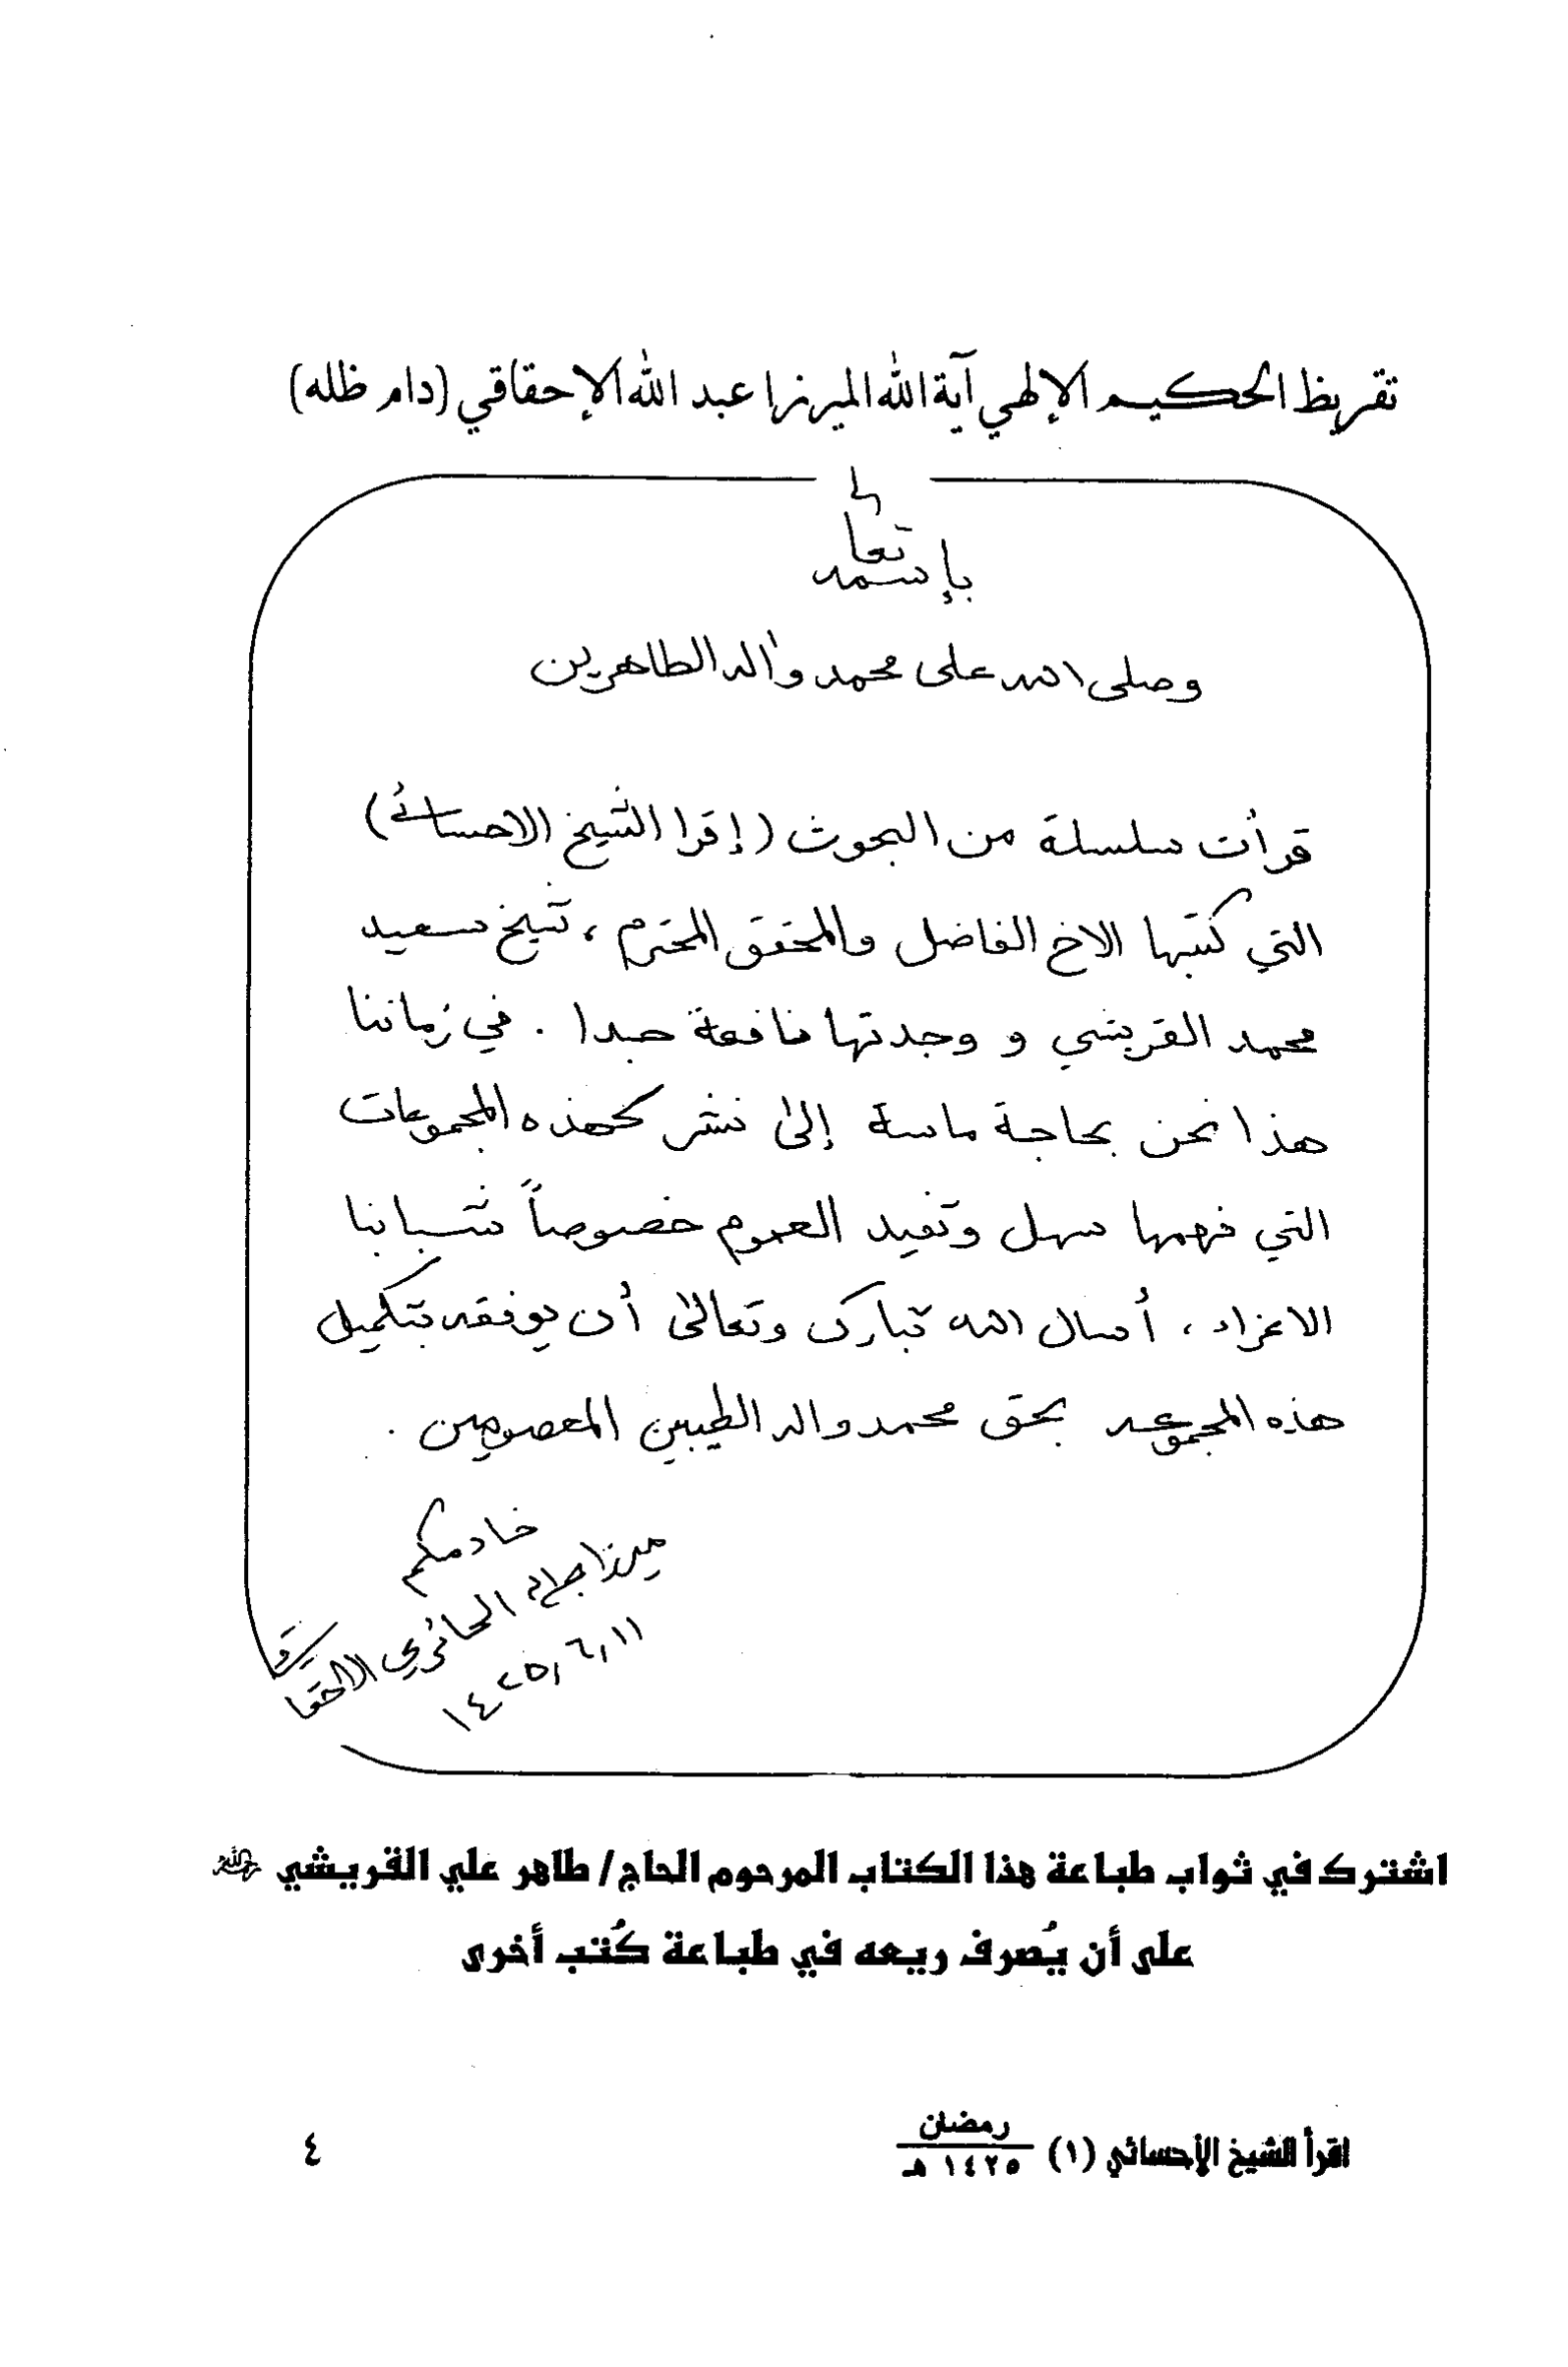 تقريظ الحكيم الإلهي آية الله الميرزا عبد الله الإحقاقي (دام ظله)
بإسمه تعالى
وصلى الله على محمد وآله الطاهرين
قرأت سلسلة من البحوث (إقرا الشيخ الاحسائي)
التي كتبها الاخ الفاضل والمحقق المحترم ، شيخ سعيد
محمد القريشي و وجدتها نافعة جدا . في زماننا
هذا نحن بحاجة ماسة إلى نشر كهذه المجموعات
التي فهمها سهل وتفيد العموم خصوصاً شبابنا
الاعزاء ، أسال الله تبارك وتعالى أن يوفقه بتكميل
هذه المجموعه بحق محمد واله الطيبين المعصومين .
خادمكم
ميرزا الحائري الاحقاقي
١٤٢٥,٦,١١
اشترك في ثواب طباعة هذا الكتاب المرحوم الحاج/ طاهر علي القريشي رحمه الله
على أن يُصرف ريعه في طباعة كُتب أخرى
اقرأ الشيخ الأحسائي (١) رمضان ١٤٢٥ هـ
٤